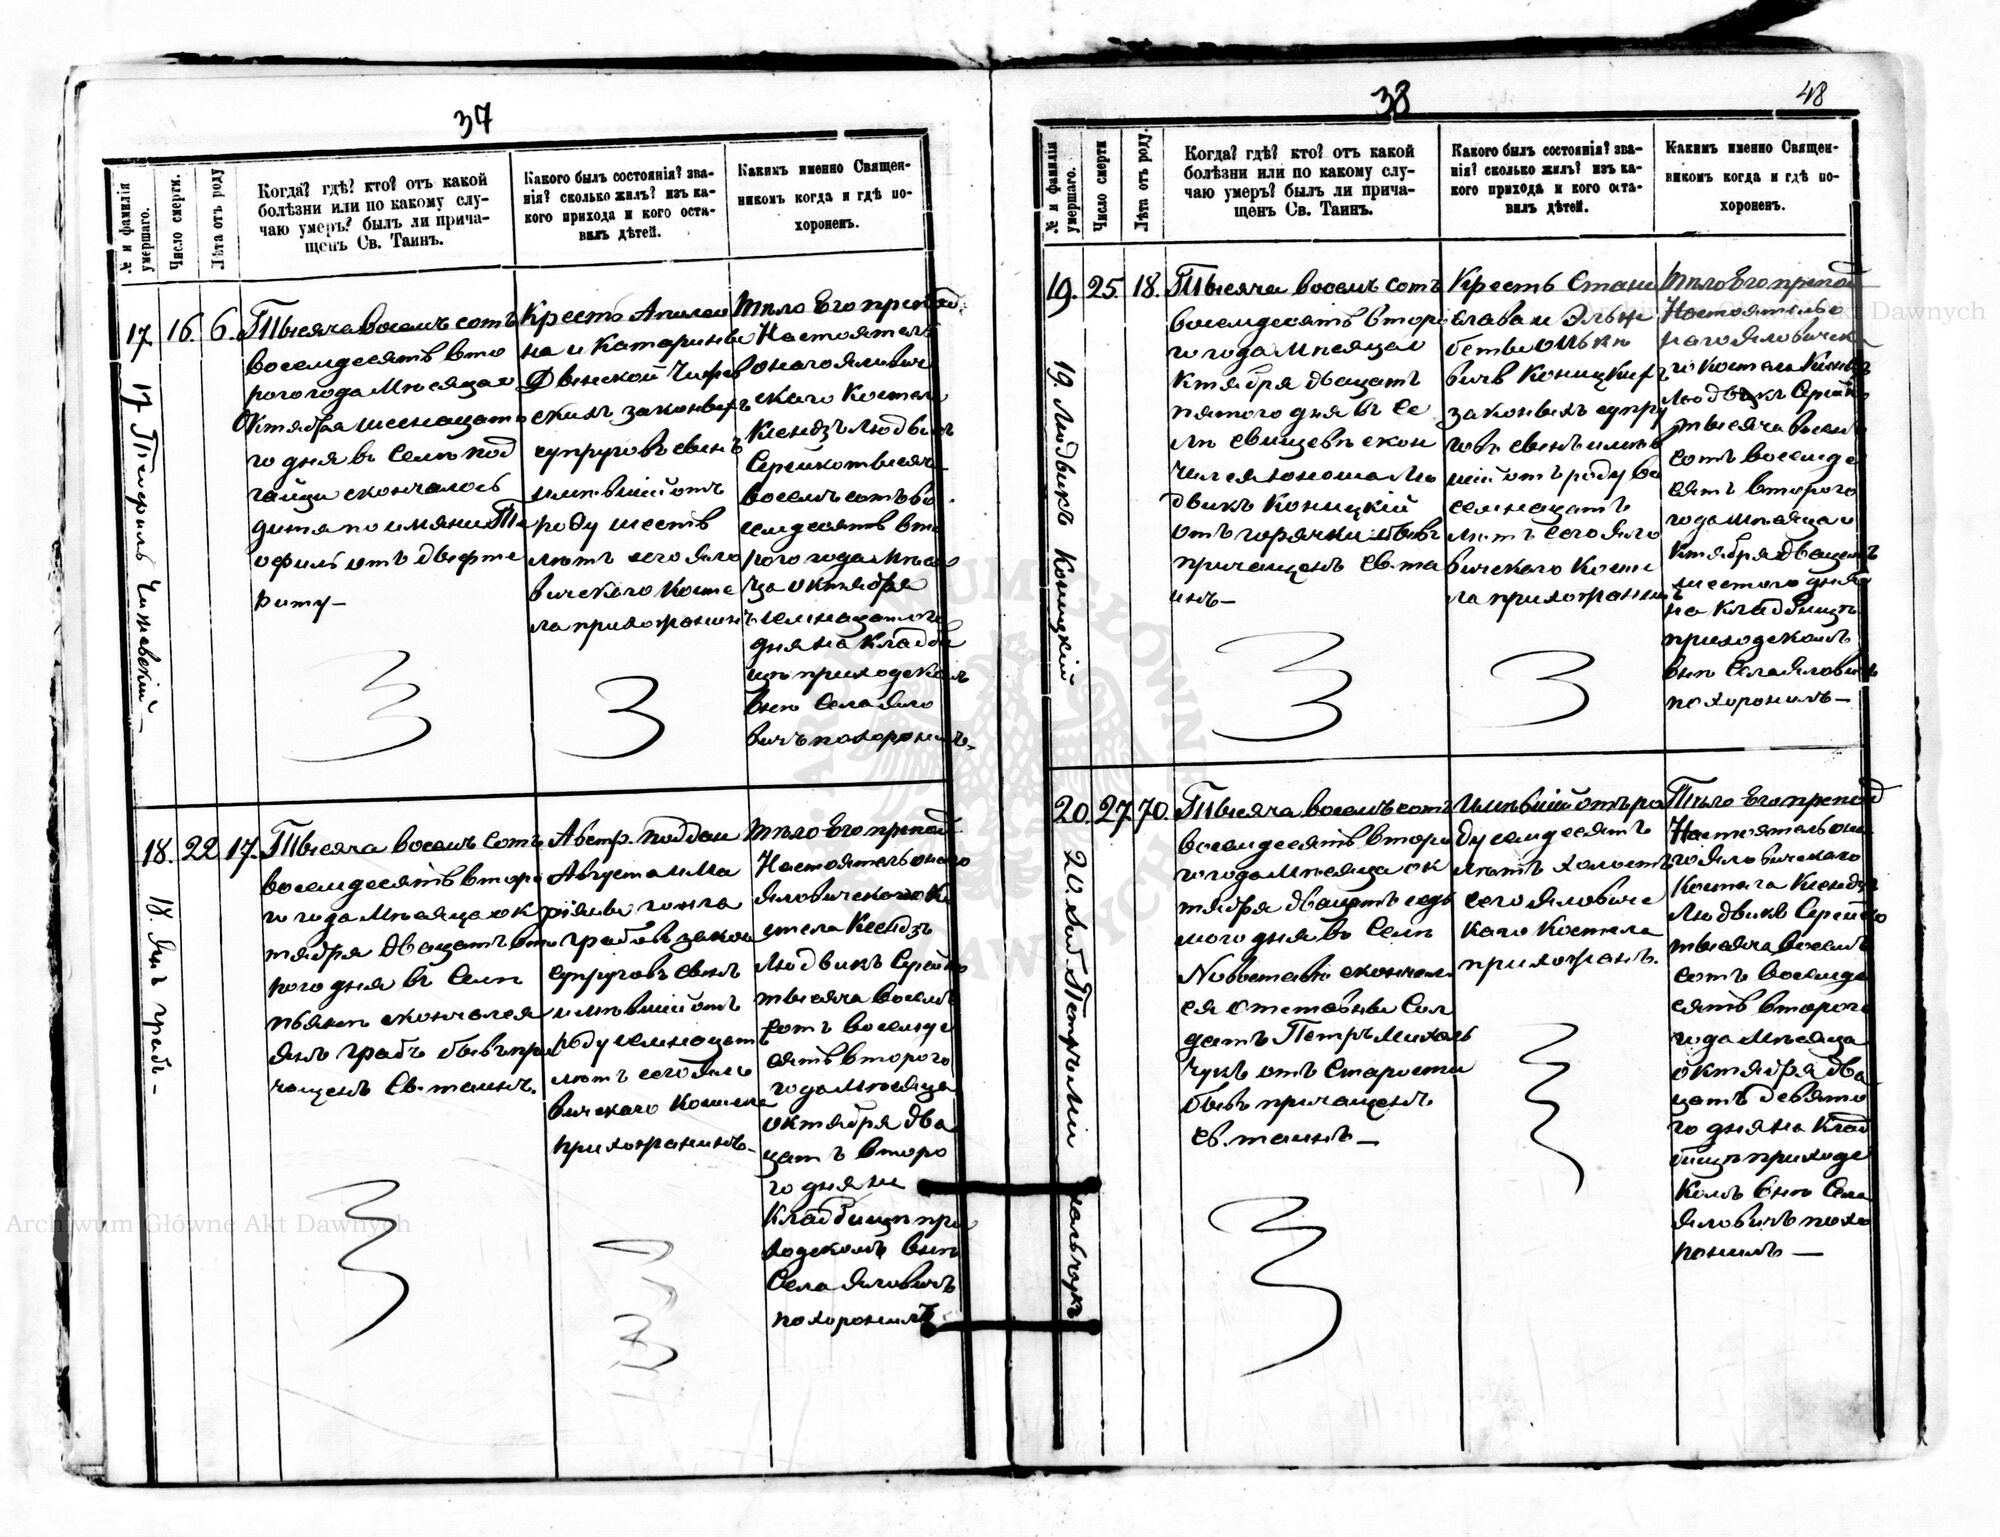 37
№ и фамилія умершаго.
Число смерти.
Лѣта отъ роду
Когда? гдѣ? кто? отъ какой
болѣзни или по какому слу-
чаю умеръ? былъ ли прича-
щенъ Св. Таинъ.
Какого былъ состоянія? зва-
нія? сколько жилъ? изъ ка-
кого прихода и кого оста-
вилъ дѣтей.
Какимъ именно Священ-
никомъ когда и гдѣ по-
хороненъ.
17
17 Теофиль
16.
6.
Тысяча восемь сотъ
восемдесятъ вто
рого года Мѣсяца
Октября шеснацато
го дня въ Селѣ Под
гайци скончалось
дитя по имяни Те
офиль отъ дифте
риту—
Крестъ
на и Катарины
законныхъ
супруговъ сынъ
имѣвшій отъ
роду шесть
лѣтъ сего Яло
вичского Косте
ла прихожанинъ
Тѣло Его препод
Настоятель
онаго Ялович
ского Костела
Ксендзъ Людвикъ
Серейко тысяча
восемъ сотъ во
семдесятъ вто
рого года Мѣся
ца Октября
семнацатого
дня на Кладби
щѣ приходскомъ
внѣ Села Яло
вичъ похоронилъ.
18.
18. Янъ Грабъ—
22
17.
Тысяча восемь сотъ
восемдесятъ второ
го года Мѣсяца Ок
тября двацать вто
рого дня въ Селѣ
скончался
Янъ Грабъ бывъ при
чащенъ Св. таинъ.
Австр. поддан
Августа и Ма
ріяны
Грабовъ закон
супруговъ сынъ
имѣвшій отъ
роду семнацать
лѣтъ сего Яло
вичского Костела
прихожанинъ—
Тѣло Его препод
Настоятель онаго
Яловичского Ко
стела Ксендзъ
Людвикъ Серейко
тысяча восемь
сотъ восемде
сятъ второго
года Мѣсяца
Октября два
цать второ
го дня на
Кладбищѣ при
ходскомъ внѣ
Села Яловичъ
похоронилъ
38
48
№ и фамилія умершаго.
Число смерти
Лѣта отъ роду.
Когда? гдѣ? кто? отъ какой
болѣзни или по какому слу-
чаю умеръ? былъ ли прича-
щенъ Св. Таинъ.
Какого былъ состоянія? зва-
нія? сколько жилъ? изъ ка-
кого прихода и кого оста-
вилъ дѣтей.
Какимъ именно Священ-
никомъ когда и гдѣ по-
хороненъ.
19.
19. Людвикъ Коницкій
25.
18.
Тысяча восемь сотъ
восемдесятъ второ
го года Мѣсяца О
ктября двацать
пятого дня въ Се
лѣ скон
чился юноша Лю
двикъ Коницкій
отъ горячки бывъ
причащенъ Св. та
инъ—
Крестъ Стани
слава и Эльж
беты
Коницкихъ
законныхъ супру
говъ сынъ имѣв
шій отъ роду во
семнацать
лѣтъ сего Яло
вичского Косте
ла прихожанинъ
Тѣло Его препод
Настоятель о
наго Яловичска
го Костела Ксендзъ
Людвикъ Серейко
тысяча восемь
сотъ восемде
сятъ второго
года Мѣсяца О
ктября двацать
шестого дня
на Кладбищѣ
приходскомъ
внѣ Села Яловичъ
похоронилъ—
20.
27.
70.
Тысяча восемь сотъ
восемдесятъ второ
го года Мѣсяца Ок
тября двацать седь
мого дня въ Селѣ
Новоставѣ скончил
ся отставный Сол
датъ Петръ Михаль
чукъ отъ Старости
бывъ причащенъ
Св. таинъ—
Имѣвшій отъ ро
ду семдесятъ
лѣтъ холостъ
сего Яловичс
кого Костела
прихожанъ.
Тѣло Его препод
Настоятель она
го Яловичскаго
Костела Ксендзъ
Людвикъ Серейко
тысяча восемь
сотъ восемде
сятъ второго
года Мѣсяца
Октября два
цать девято
го дня на Клад
бищѣ приход
скомъ внѣ Села
Яловичъ похо
ронилъ—
Archiwum Główne Akt Dawnych
Archiwum Główne Akt Dawnych